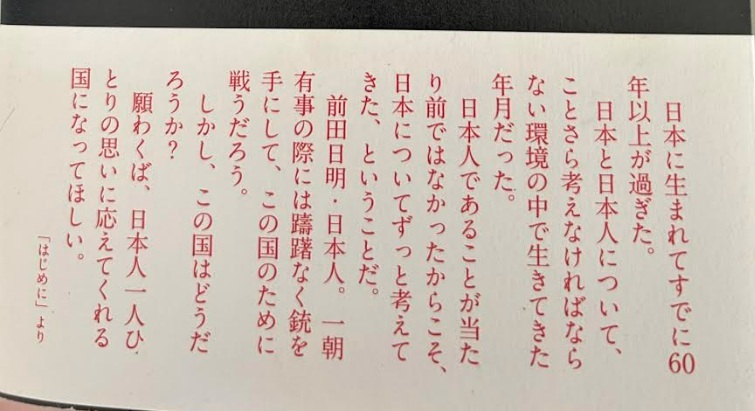 日本に生まれてすでに60
年以上が過ぎた。
日本と日本人について、
ことさら考えなければなら
ない環境の中で生きてきた
年月だった。
日本人であることが当た
り前ではなかったからこそ、
日本についてずっと考えて
きた、ということだ。
前田日明・日本人。一朝
有事の際には躊躇なく銃を
手にして、この国のために
戦うだろう。
しかし、この国はどうだ
ろうか?
願わくば、日本人一人ひ
とりの思いに応えてくれる
国になってほしい。
「はじめに」より